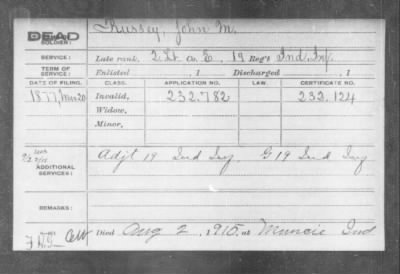 Russey, John M.
DEAD
SOLDIER:
SERVICE: Late rank, 2 Lt. Co. E, 19 Reg't Ind Inf.
TERM OF SERVICE: Enlisted , 1 Discharged , 1
DATE OF FILING. CLASS. APPLICATION NO. LAW. CERTIFICATE NO.
1877, Mar 20 Invalid, 232.782 233.124
Widow,
Minor,
ADDITIONAL SERVICES: Adjt 19 Ind Inf G 19 Ind Inf
REMARKS:
Died Aug 2, 1915, at Muncie Ind